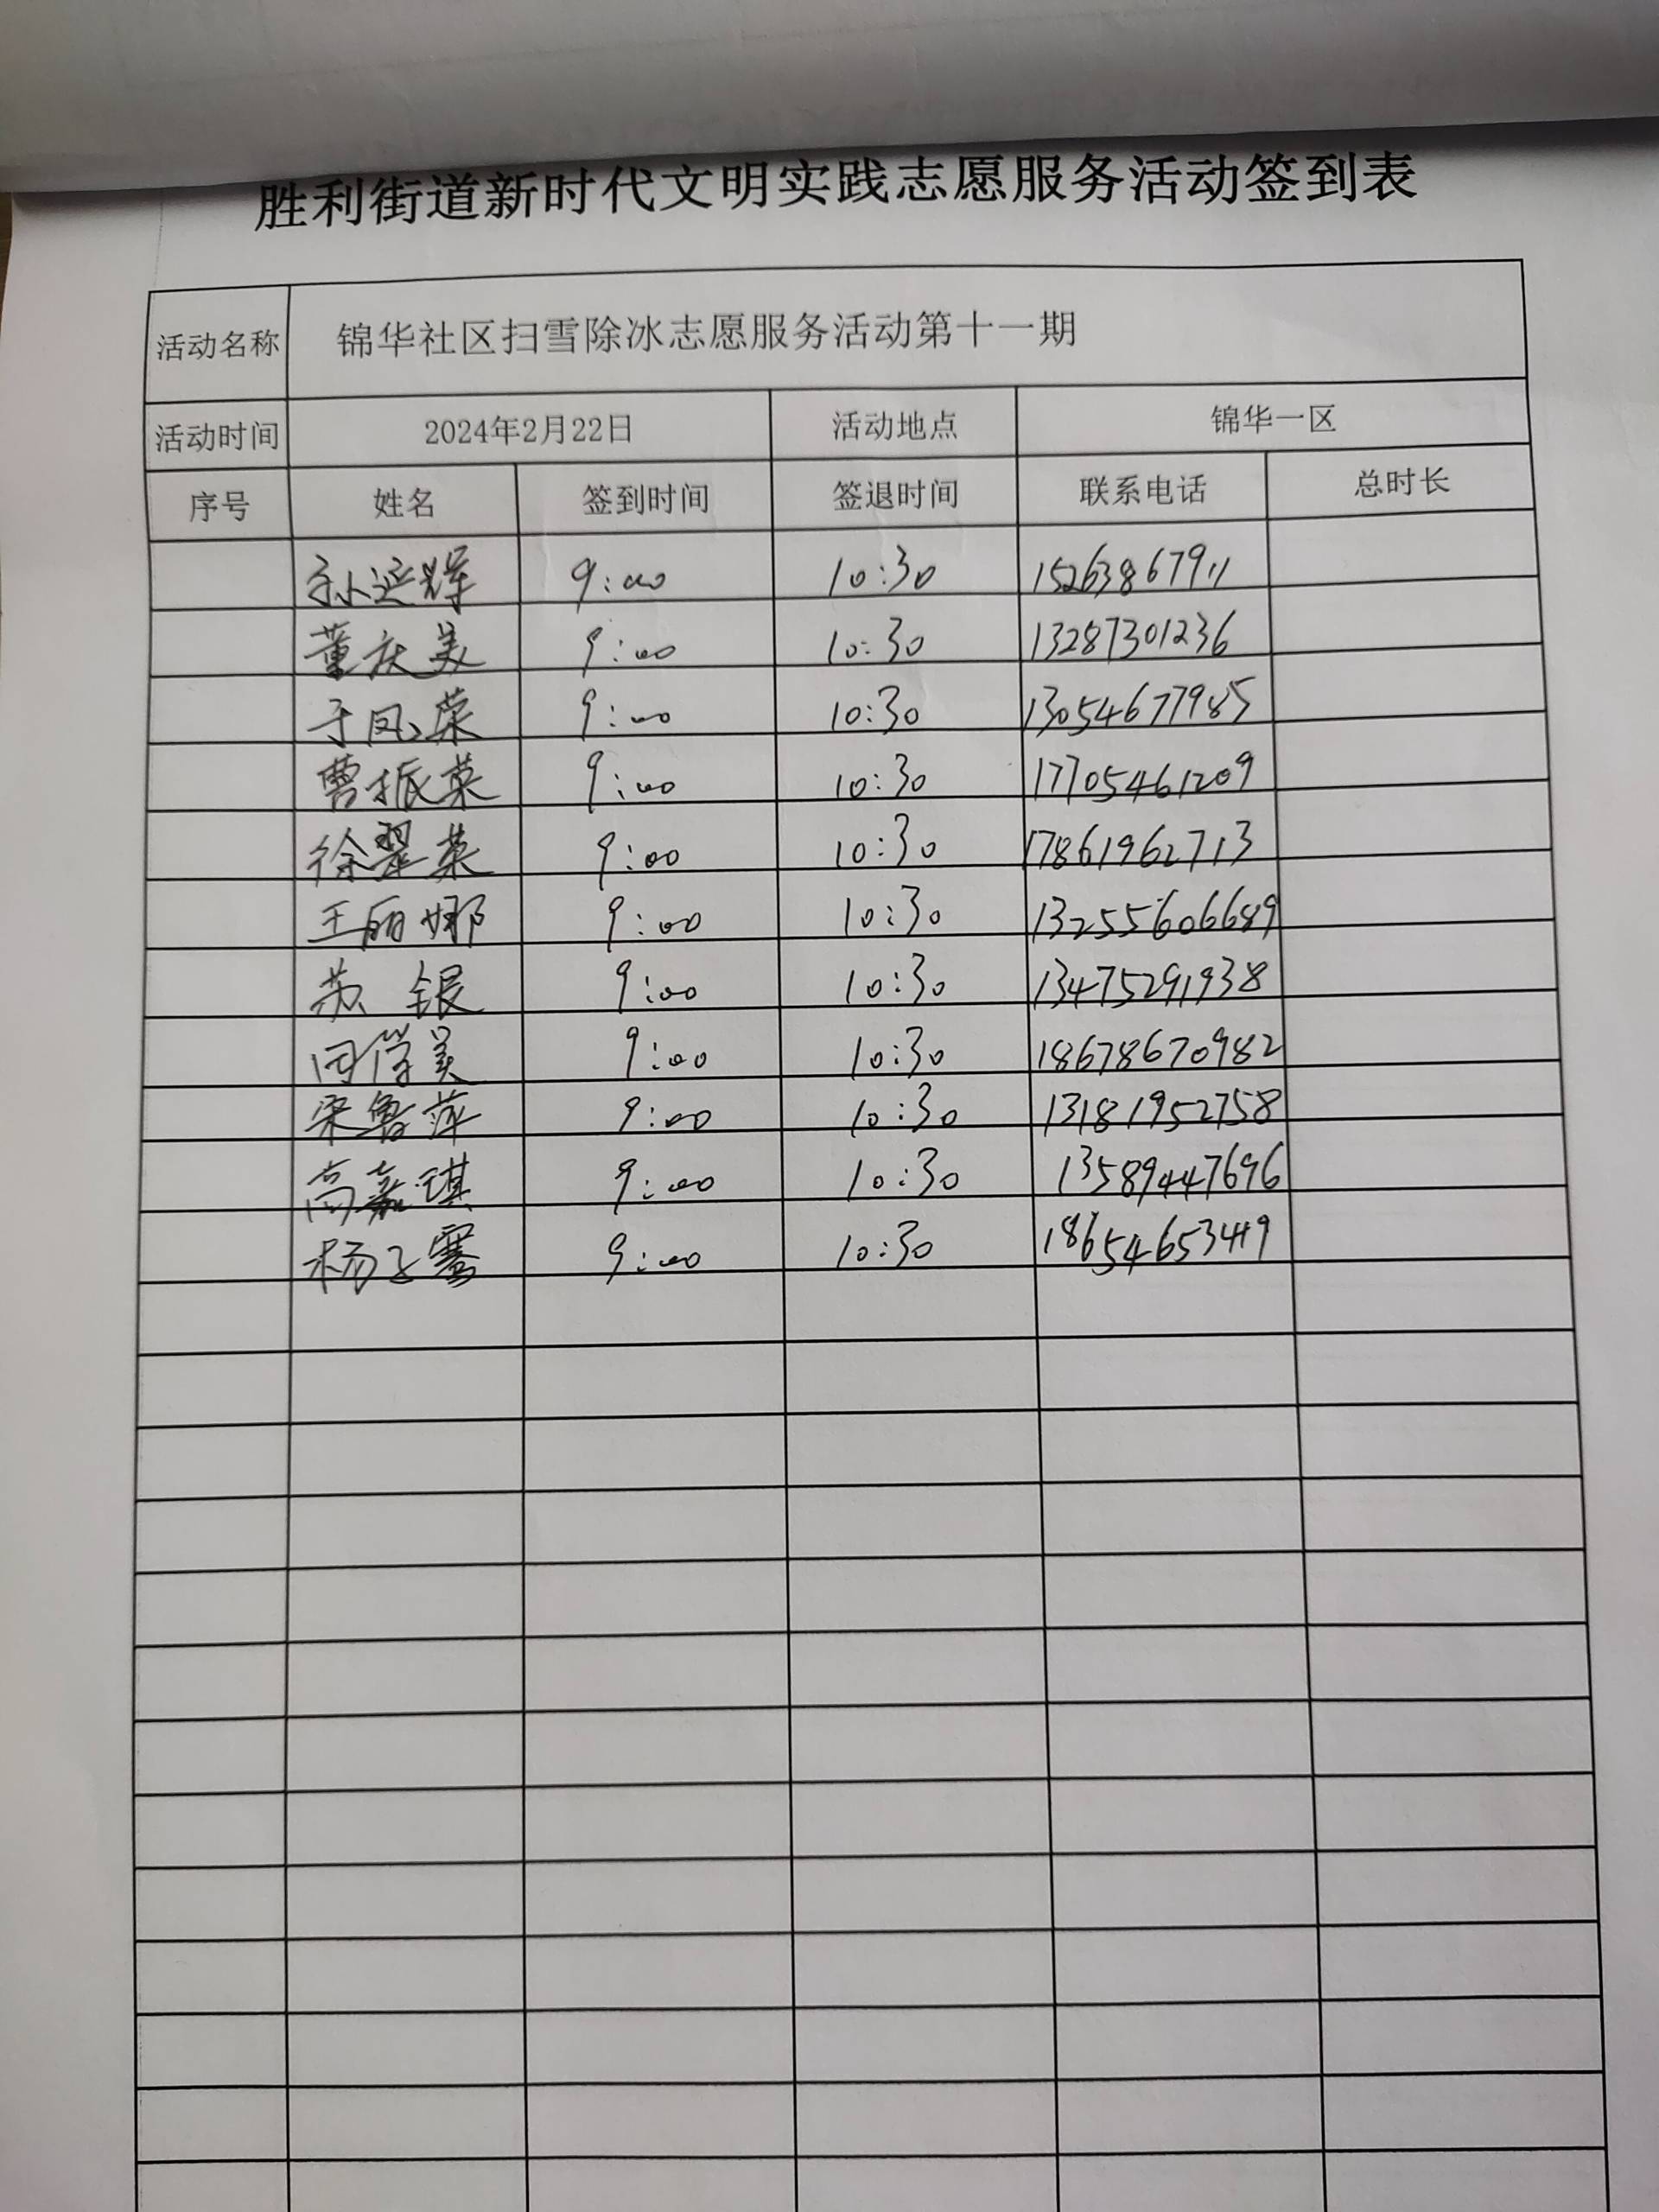 胜利街道新时代文明实践志愿服务活动签到表
活动名称 锦华社区扫雪除冰志愿服务活动第十一期
活动时间 2024年2月22日 活动地点 锦华一区
序号 姓名 签到时间 签退时间 联系电话 总时长
孙延辉 9:00 10:30 15263867911
董庆美 9:00 10:30 13287301236
于凤荣 9:00 10:30 13054677985
曹振英 9:00 10:30 17705461209
徐翠英 9:00 10:30 17861962713
王丽娜 9:00 10:30 13255606689
苏银 9:00 10:30 13475291938
田学美 9:00 10:30 18678670982
宋鲁萍 9:00 10:30 13181952758
高嘉琪 9:00 10:30 13589447696
杨子骞 9:00 10:30 18654653419